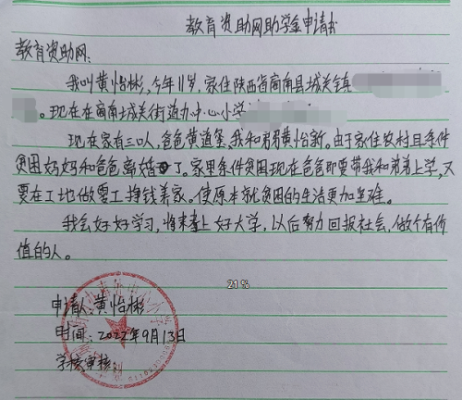 教育资助网助学金申请书
教育资助网:
我叫黄怡彬,今年11岁,家住陕西省商南县城关镇
。现在在商南城关街道办中心小学
现在家有三口人,爸爸黄道筌、我和弟弟黄怡新。由于家住农村且条件
贫困妈妈和爸爸离婚了。家里条件贫困现在爸爸即要带我和弟弟上学,又
要在工地做零工挣钱养家。使原本就贫困的生活更加坚难。
我会好好学习,将来考上好大学,以后努力回报社会,做个有价
值的人。
215
申请人:黄怡彬
时间:2022年9月13日
学校审核: